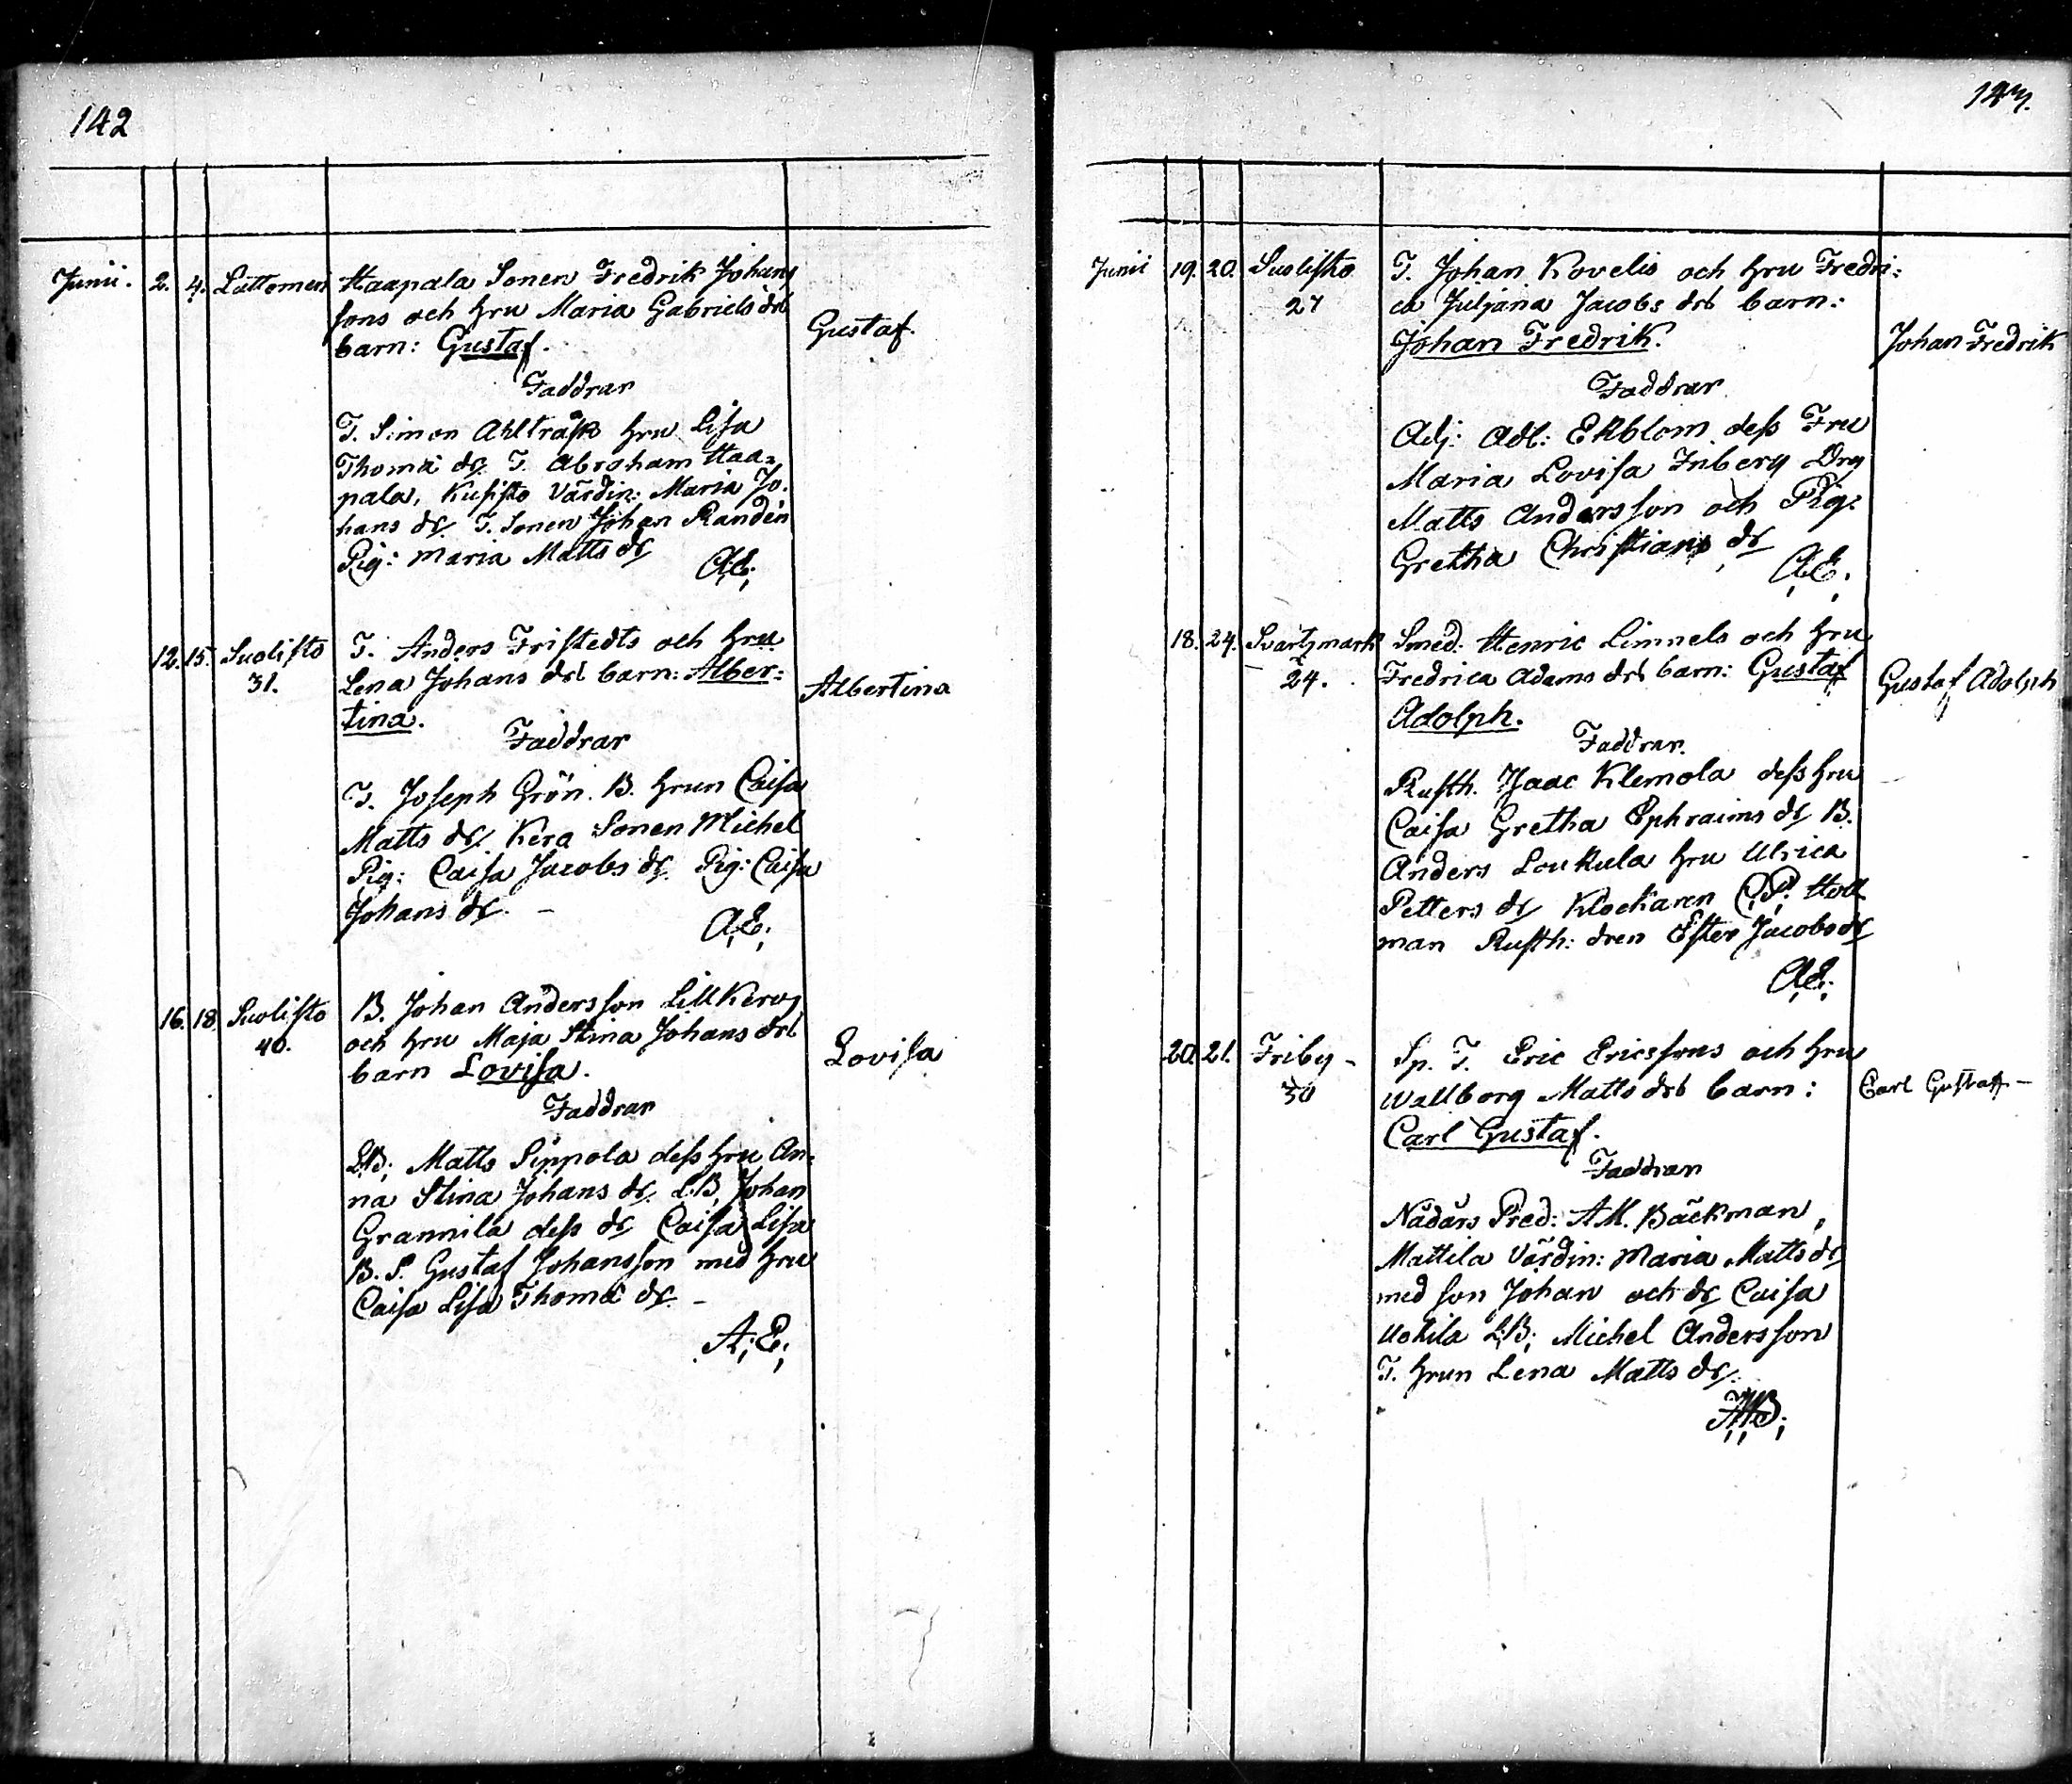 142
Junii. 2. 4. Lattomeri Haapala Sonen Fredrik Johans
sons och hru Maria Gabriels drs
barn: Gustaf.
Gustaf.
Faddrar
T. Simon Ahlträsk hru Lisa
Thomä dr. T. Abraham Haa=
pala, Kusisto Värdin: Maria Jo.
hans dr. T. Sonen Johan Randen
Pig: Maria Matts dr
A.E.
12. 15. Suolisto T. Anders Fristedts och hru
31. Lena Johans drs barn: Alber=
tina.
Albertina
Faddrar
T. Joseph Grön. B. hrun Caisa
Matts dr. Kera Sonen Michel
Pig: Caisa Jacobs dr. Pig: Caisa
Johans dr. –
A.E.
16. 18 Suolisto B. Johan Andersson LillKeros
40. och hru Maja Stina Johans drs
barn Lovisa.
Lovisa
Faddrar
LB; Matts Sippola dess hru An=
na Stina Johans dr. LB. Johan
Grannila dess dr Caisa Lisa
B. S. Gustaf Johansson med hru
Caisa Lisa Thomä dr. –
A.E.
143.
Junii 19. 20. Suolisto T. Johan Kovelis och hru Fredri=
27 ca Juljana Jacobs drs barn:
Johan Fredrik.
Johan Fredrik
Faddrar
Adj: Adl: Ekblom dess Fru
Maria Lovisa Inberg Drg
Matts Andersson och Pig:
Gretha Christians dr
A.E.
18. 24. Svartsmark Smed. Henric Limnels och hru
24. Fredrica Adams drs barn: Gustaf
Adolph.
Gustaf Adolph
Faddrar.
Rusth. Isaac Klemola dess hru
Caisa Gretha Ephraims dr B.
Anders Loukula hru Ulrica
Petters dr Klockaren C.P. Holl
man Rusth: dren Ester Jacobs dr
A.E.
20. 21. Friby – Sp. T. Eric Ericssons och hru
30 Wallborg Matts drs barn:
Carl Gustaf.
Carl Gustaf –
Faddrar
Nådårs Pred: A.M. Bäckman,
Mattila Värdin: Maria Matts dr
med son Johan och dr Caisa
LB; Michel Andersson
T. hrun Lena Matts dr.
AMB;